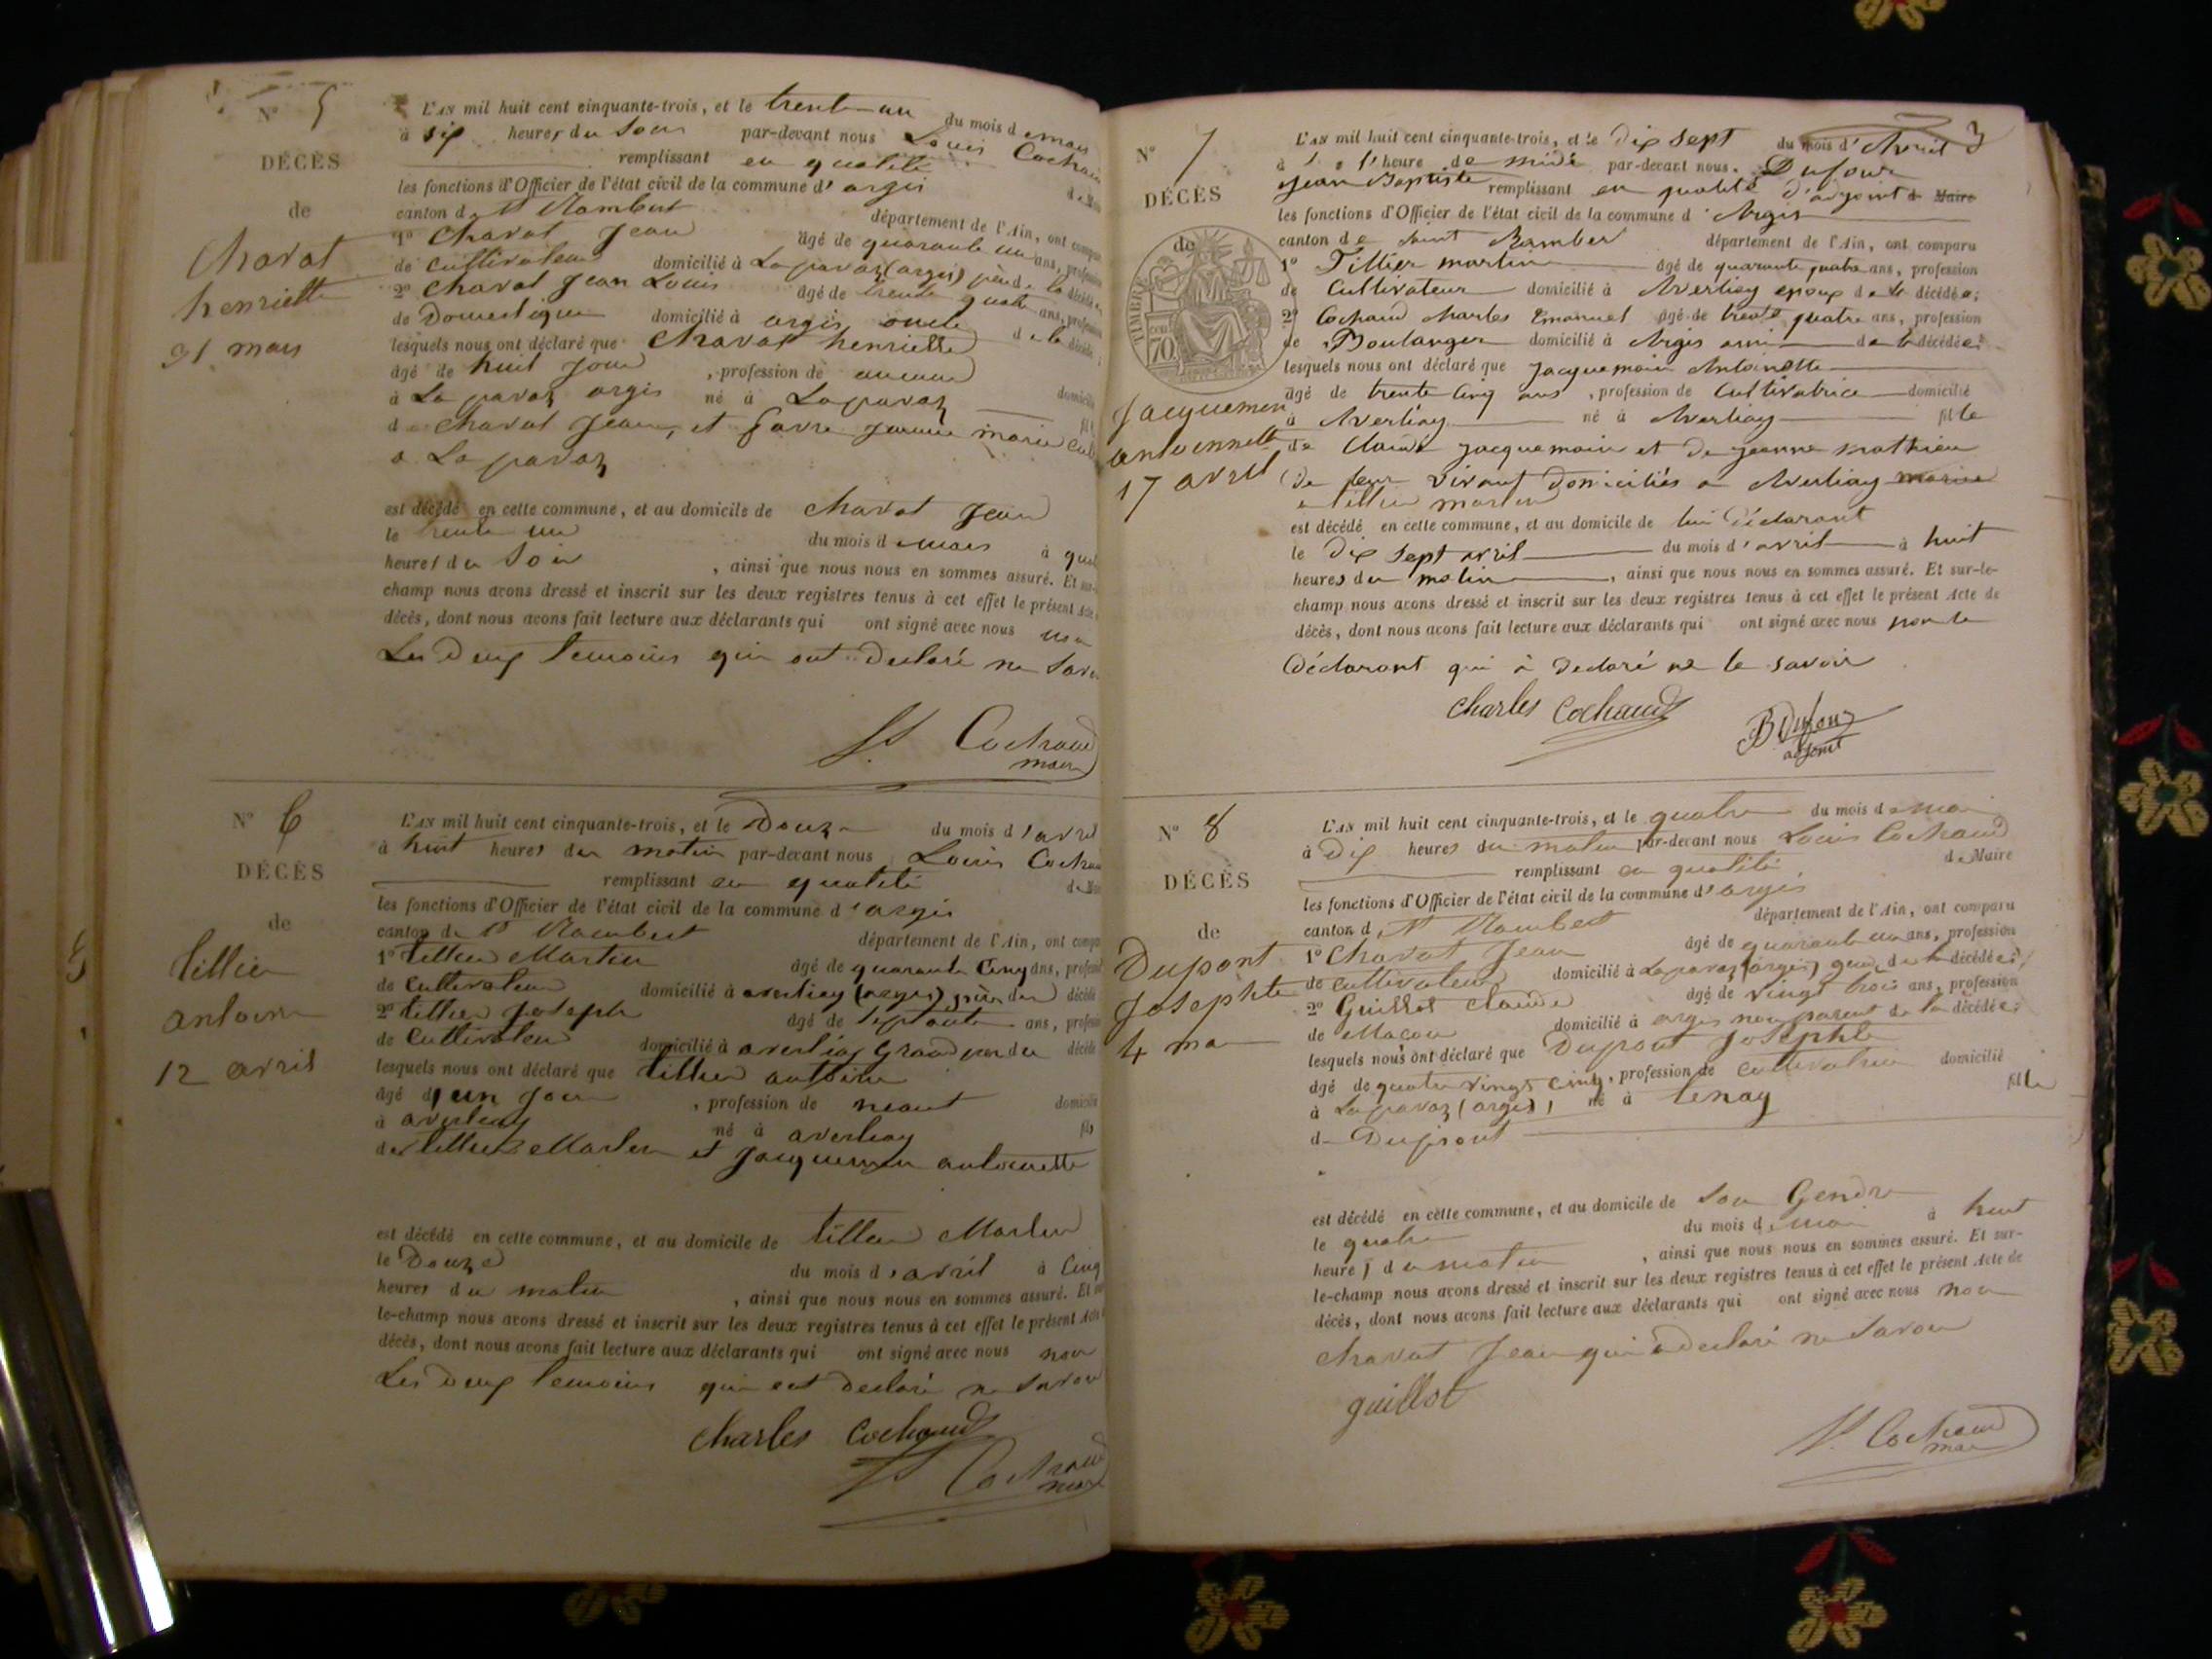 N° 5
DÉCÈS
de
Charat
henriette
31 mars
L'AN mil huit cent cinquante-trois, et le trente-un du mois de mars
à six heures du Soir par-devant nous Louis Cochaud
remplissant en qualité
les fonctions d'Officier de l'état civil de la commune d'argis
canton de St Rambert département de l'Ain, ont
1° Charat Jean âgé de quarante un ans,
de cultivateur domicilié à La pavaz (argis) père de la
2° Charat Jean Louis âgé de trente quatre ans,
de Domestique domicilié à argis oncle de la
lesquels nous ont déclaré que Charat henriette
âgé de huit jours, profession de aucune
à La pavaz argis né à La pavaz
de Charat Jean, et favre jeanne marie
a La pavaz
est décédé en cette commune, et au domicile de Charat Jean
le trente un du mois de mars à
heures du Soir, ainsi que nous nous en sommes assuré. Et sur-
champ nous avons dressé et inscrit sur les deux registres tenus à cet effet le présent Acte
décès, dont nous avons fait lecture aux déclarants qui ont signé avec nous non
Les Deux temoins qui ont Declaré ne
Cochaud
maire
N° 6
DÉCÈS
de
tillier
antoine
12 avril
L'AN mil huit cent cinquante-trois, et le Douze du mois d'avril
à huit heures du matin par-devant nous Louis
remplissant en qualité
les fonctions d'Officier de l'état civil de la commune d'argis
canton de St Rambert département de l'Ain, ont
1° tillier Martin âgé de quarante Cinq ans,
de Cultivateur domicilié à averliay (argis) père du décédé
2° tillier Joseph âgé de Septante ans,
de Cultivateur domicilié à averliay Grand pere du décédé
lesquels nous ont déclaré que tillier antoine
âgé d'un jour, profession de neant
à averliay né à averliay fils
de tillier Martin et Jacquemin antoinette
est décédé en cette commune, et au domicile de tillier Martin
le Douze du mois d'avril à Cinq
heures du matin, ainsi que nous nous en sommes assuré. Et
le-champ nous avons dressé et inscrit sur les deux registres tenus à cet effet le présent
décès, dont nous avons fait lecture aux déclarants qui ont signé avec nous non
Les Deux temoins qui ont declaré ne Savoir
Charles Cochaud
Cochaud
maire
3
N° 7
DÉCÈS
de
TIMBRE
70
Jacquemin
antoinnette
17 avril
L'AN mil huit cent cinquante-trois, et le Dix sept du mois d'Avril
à l'heure de midi par-devant nous. Dufour
Jean Baptiste remplissant en qualité d'adjoint de Maire
les fonctions d'Officier de l'état civil de la commune d'Argis
canton de Saint Rambert département de l'Ain, ont comparu
1° Tillier martin âgé de quarante quatre ans, profession
de Cultivateur domicilié à Averliay epoux de la décédée;
2° Cochaud Charles Emanuel âgé de trente quatre ans, profession
de Boulanger domicilié à Argis ami de la décédée;
lesquels nous ont déclaré que Jacquemain Antoinette
âgé de trente Cinq ans, profession de Cultivatrice domicilié
à Averliay né à Averliay fille
de Claude Jacquemain et De jeanne mathieu
De leur vivant Domiciliés a Averliay mariée
a tillier martin
est décédé en cette commune, et au domicile de lui Déclarant
le Dix Sept avril du mois d'avril à huit
heures du matin, ainsi que nous nous en sommes assuré. Et sur-le-
champ nous avons dressé et inscrit sur les deux registres tenus à cet effet le présent Acte de
décès, dont nous avons fait lecture aux déclarants qui ont signé avec nous non le
Déclarant qui à Declaré ne le savoir
Charles Cochaud
B Dufour
adjoint
N° 8
DÉCÈS
de
Dupont
Josephte
4 mai
L'AN mil huit cent cinquante-trois, et le quatre du mois de mai
à Dix heures du matin par-devant nous Louis Cochaud
remplissant en qualité de Maire
les fonctions d'Officier de l'état civil de la commune d'argis
canton de St Rambert département de l'Ain, ont comparu
1° Charat Jean âgé de quarante un ans, profession
de cultivateur domicilié à La pavaz (argis) gendre de la décédée;
2° Guillot claude âgé de vingt trois ans, profession
de Macon domicilié à argis non parent de la décédée;
lesquels nous ont déclaré que Dupont Josephte
âgé de quatre vingt cinq, profession de cultivatrice domicilié
à La pavaz (argis), né à tenay fille
de Dupont
est décédé en cette commune, et au domicile de Son Gendre
le quatre du mois de mai à huit
heures du matin, ainsi que nous nous en sommes assuré. Et sur-
le-champ nous avons dressé et inscrit sur les deux registres tenus à cet effet le présent Acte de
décès, dont nous avons fait lecture aux déclarants qui ont signé avec nous non
Charat Jean qui a declaré ne Savoir
guillot
Cochaud
maire